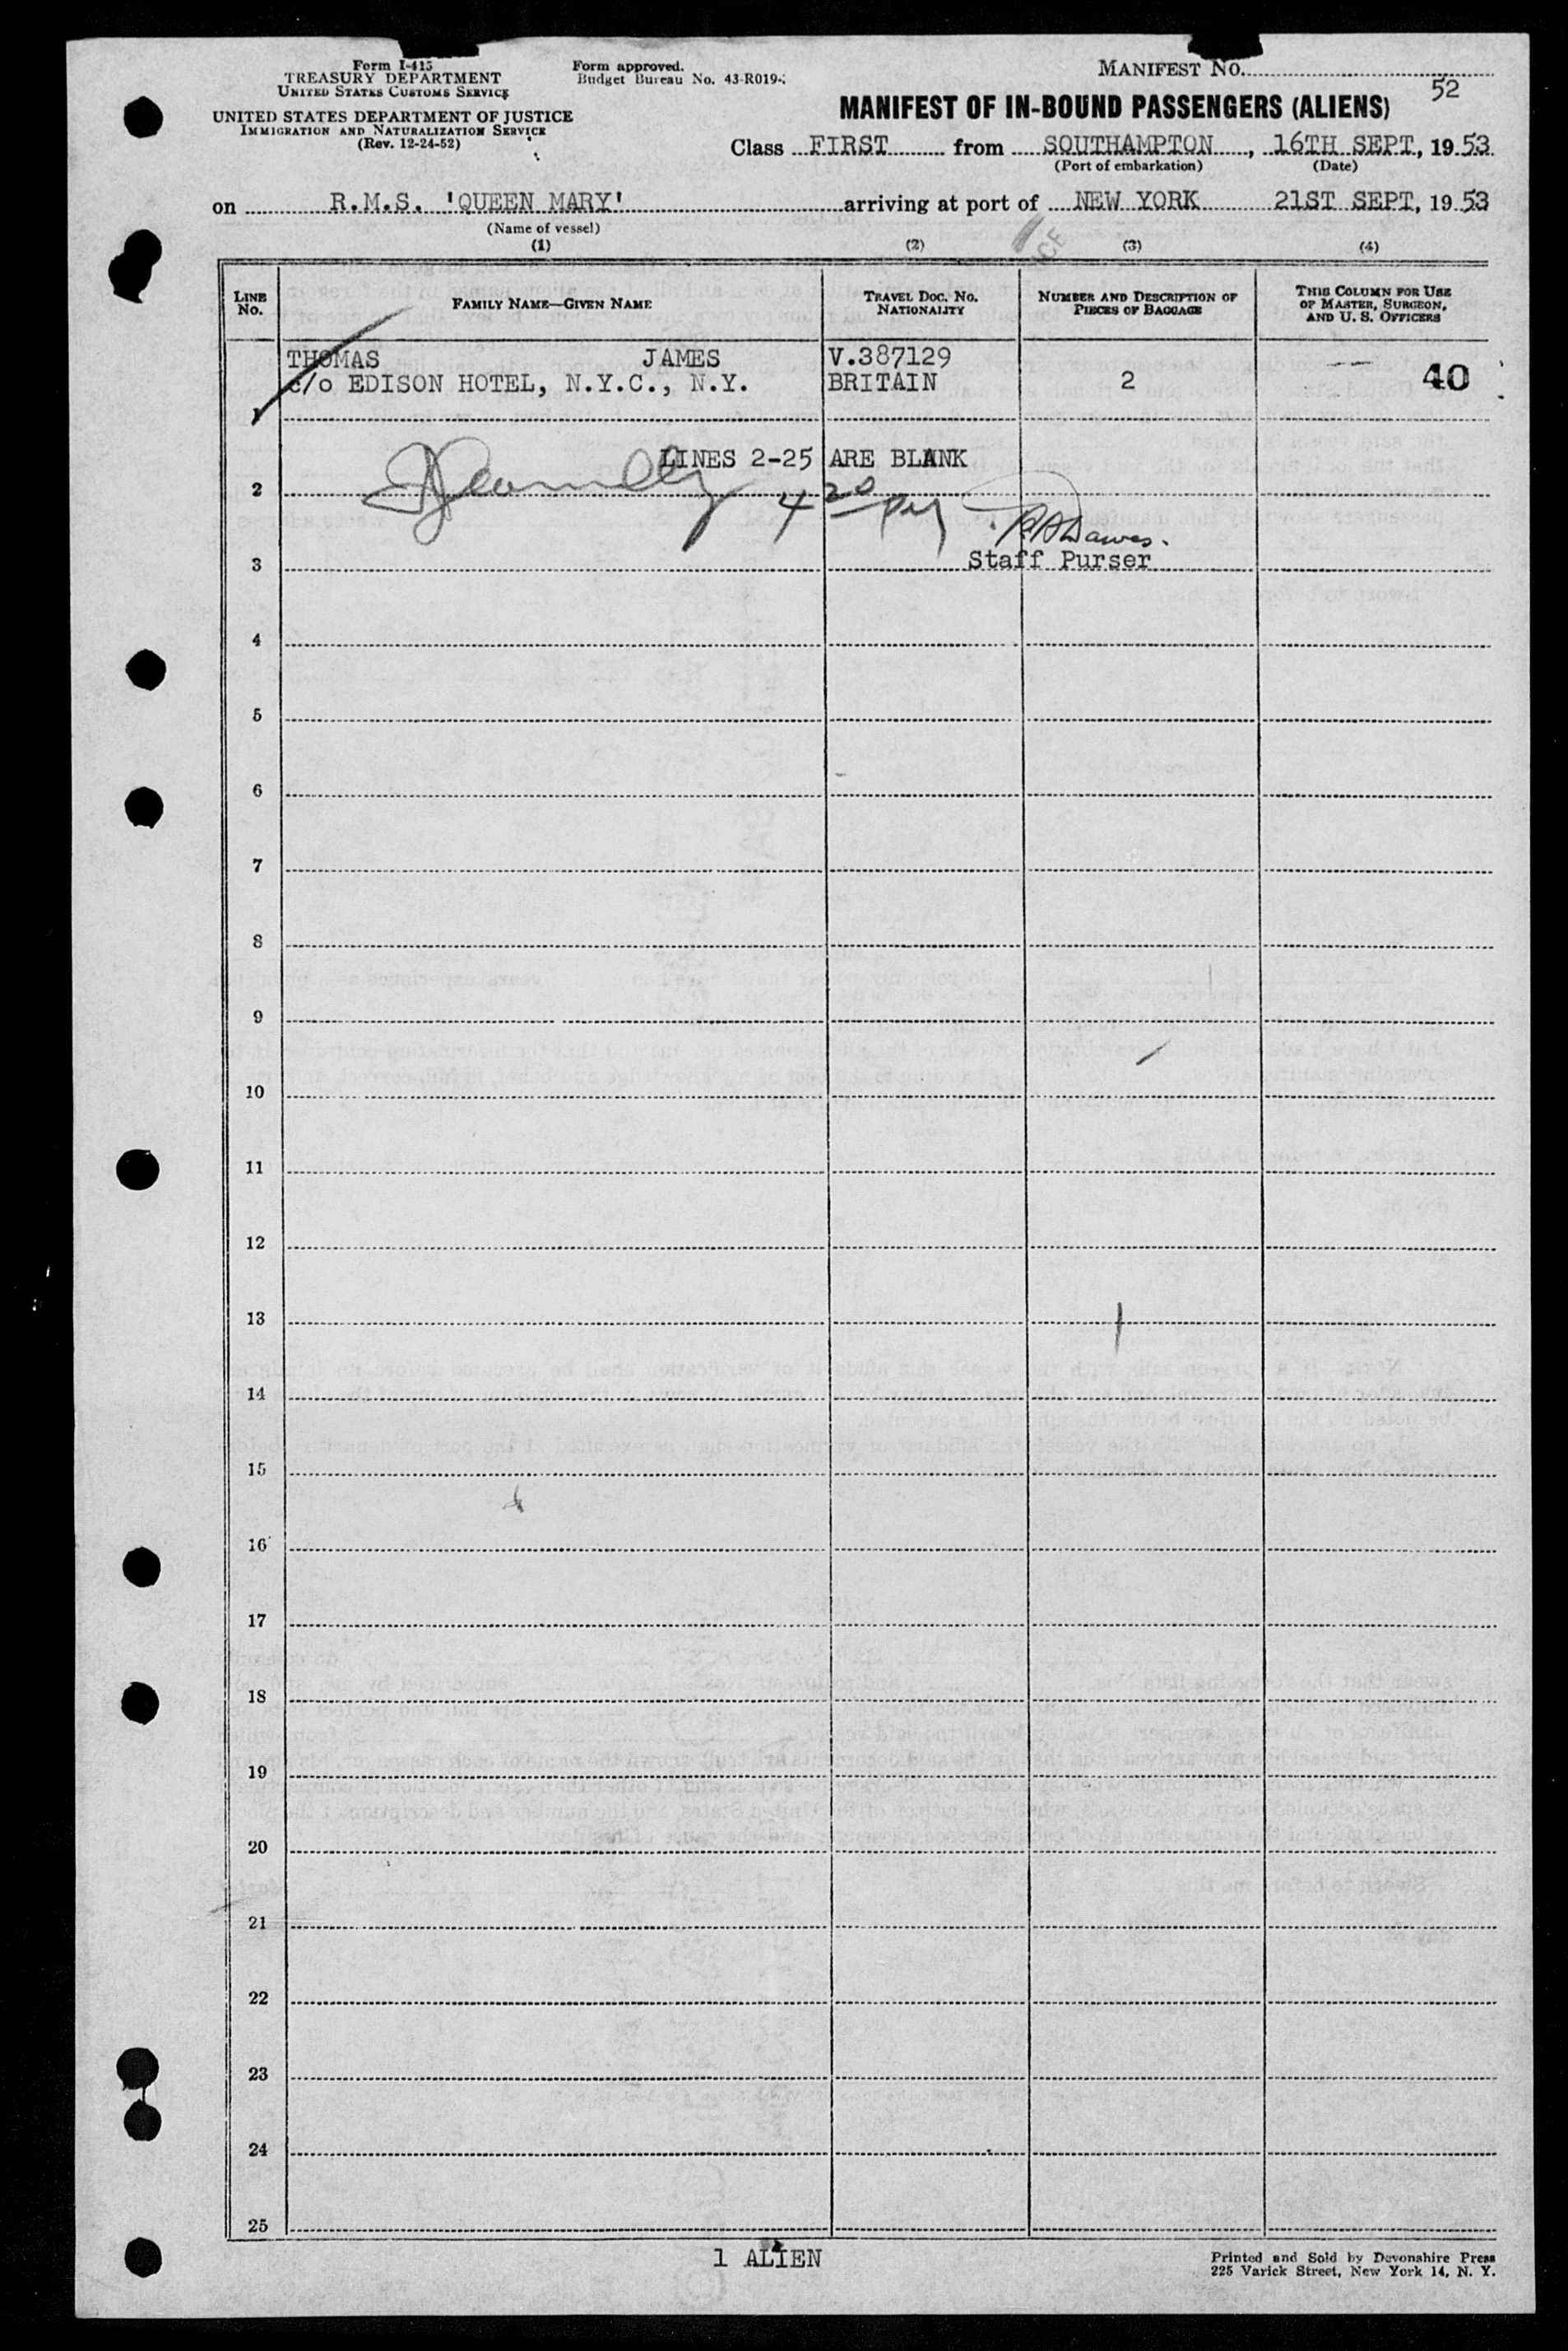 Form I-415
TREASURY DEPARTMENT
UNITED STATES CUSTOMS SERVICE
UNITED STATES DEPARTMENT OF JUSTICE
IMMIGRATION AND NATURALIZATION SERVICE
(Rev. 12-24-52)
Form approved.
Budget Bureau No. 43-R019-
MANIFEST NO.
52
MANIFEST OF IN-BOUND PASSENGERS (ALIENS)
Class FIRST from SOUTHAMPTON, 16TH SEPT, 19 53
(Port of embarkation) (Date)
on R.M.S. 'QUEEN MARY' arriving at port of NEW YORK 21ST SEPT, 19 53
(Name of vessel)
(1) (2) (3) (4)
LINE NO. FAMILY NAME—GIVEN NAME TRAVEL DOC. NO. NATIONALITY NUMBER AND DESCRIPTION OF PIECES OF BAGGAGE THIS COLUMN FOR USE OF MASTER, SURGEON, AND U. S. OFFICERS
THOMAS JAMES V.387129
c/o EDISON HOTEL, N.Y.C., N.Y. BRITAIN 2 40
1
LINES 2-25 ARE BLANK
2
4 20 pm
Staff Purser
3
4
5
6
7
8
9
10
11
12
13
14
15
16
17
18
19
20
21
22
23
24
25
1 ALIEN
Printed and Sold by Devonshire Press
225 Varick Street, New York 14, N. Y.